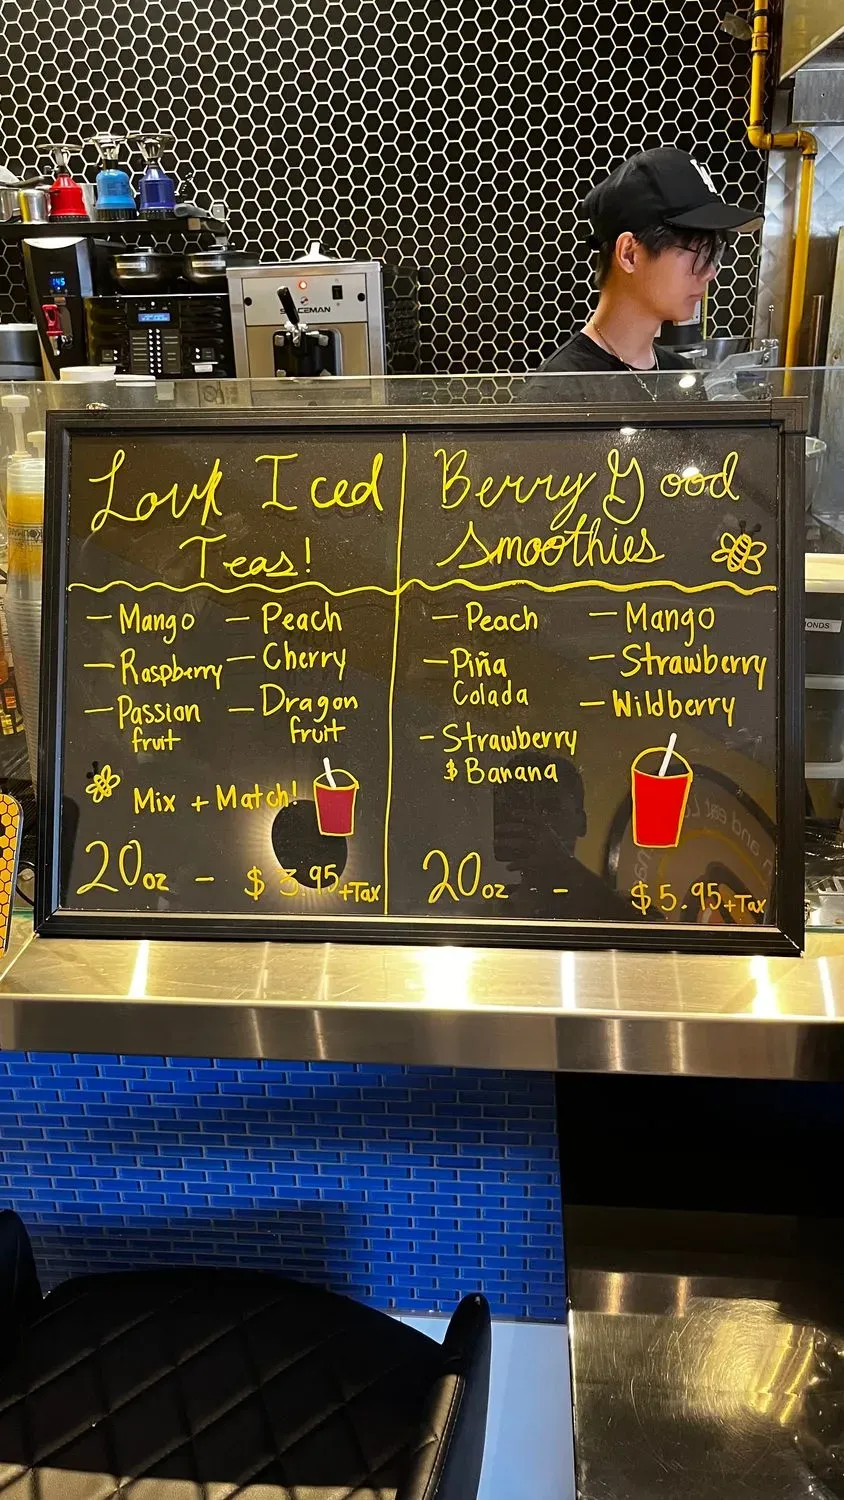 SPACEMAN
145
Louk Iced
Teas!
- Mango - Peach
- Raspberry - Cherry
- Passion fruit - Dragon fruit
Mix + Match!
20oz - $3.95 +Tax
Berry Good
Smoothies
- Peach - Mango
- Piña Colada - Strawberry
- Strawberry & Banana - Wildberry
20oz - - $5.95 +Tax